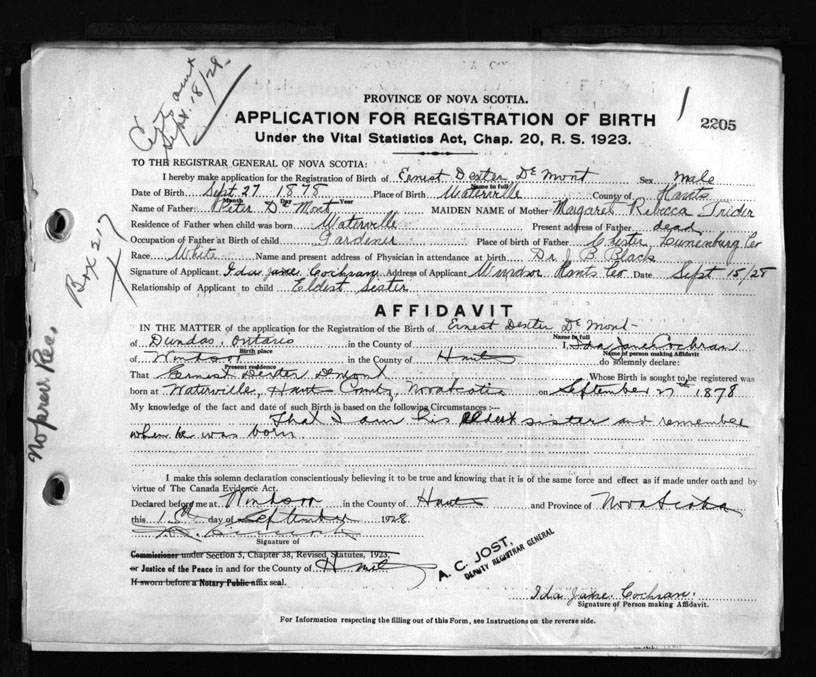 Cert sent
Sept. 18/28.
PROVINCE OF NOVA SCOTIA.
2205
APPLICATION FOR REGISTRATION OF BIRTH
Under the Vital Statistics Act, Chap. 20, R. S. 1923.
TO THE REGISTRAR GENERAL OF NOVA SCOTIA:
I hereby make application for the Registration of Birth of Ernest Dexter De Mont Sex male
Name in full
Date of Birth Sept. 27 1878 Place of Birth Waterville County of Hants
Month Day Year
Name of Father Peter D Mont MAIDEN NAME of Mother Margaret Rebecca Trider
Residence of Father when child was born Waterville Present address of Father dead
Occupation of Father at Birth of child Gardener Place of birth of Father Chester, Lunenburg Co
Race White Name and present address of Physician in attendance at birth Dr J. B. Black
Signature of Applicant Ida Jane Cochran Address of Applicant Windsor Hants Co Date Sept 15/28
Relationship of Applicant to child Eldest Sister
Box 217
No prev. Rec.
AFFIDAVIT
IN THE MATTER of the application for the Registration of the Birth of Ernest Dexter De Mont
Name in full
of Dundas, Ontario in the County of I, Ida Jane Cochran
Birth place Name of person making Affidavit
of Windsor in the County of Hants do solemnly declare:
Present residence
That Ernest Dexter Demont Whose Birth is sought to be registered was
born at Waterville, Hants County, Nova Scotia on September 27th 1878
My knowledge of the fact and date of such Birth is based on the following Circumstances :—
That I am his eldest sister and remember
when he was born.
I make this solemn declaration conscientiously believing it to be true and knowing that it is of the same force and effect as if made under oath and by
virtue of The Canada Evidence Act.
Declared before me at Windsor in the County of Hants and Province of Nova Scotia
this 15th day of September 1928
Signature of
Commissioner under Section 5, Chapter 38, Revised Statutes, 1923,
or Justice of the Peace in and for the County of Hants
If sworn before a Notary Public affix seal.
A. C. JOST,
DEPUTY REGISTRAR GENERAL
Ida Jane Cochran.
Signature of Person making Affidavit.
For Information respecting the filling out of this Form, see Instructions on the reverse side.